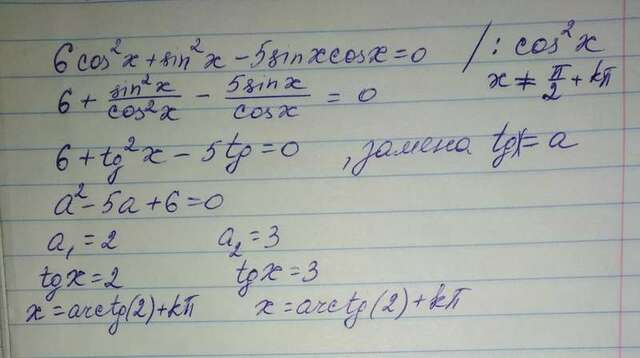 6cos²x + sin²x - 5sinxcosx = 0 /: cos²x
6 + sin²x/cos²x - 5sinx/cosx = 0 x ≠ π/2 + kπ
6 + tg²x - 5tg = 0 , замена tgx = a
a² - 5a + 6 = 0
a₁ = 2 a₂ = 3
tgx = 2 tgx = 3
x = arctg(2) + kπ x = arctg(2) + kπ